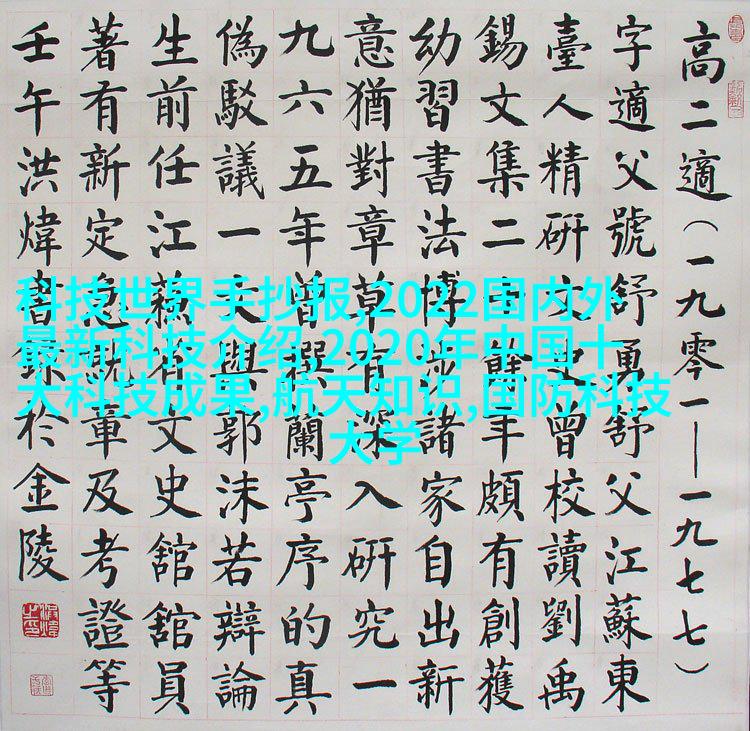 高二適（一九零一——一九七七）
字適父號舒勇舒父江蘇東
臺人精研文史曾校讀劉禹
錫文集二十餘年頗有創獲
幼習書法博涉諸家自出新
意猶對章草有深入研究一
九六五年曾撰蘭亭序的真
偽駁議一文與郭沫若辯論
生前任江蘇省文史舘舘員
著有新定急就章及考證等
壬午洪煒書錄於金陵
科技世界手抄报,2022国内外
最新科技介绍,2020年中国十
大科技成果,航天知识,国防科技
大学